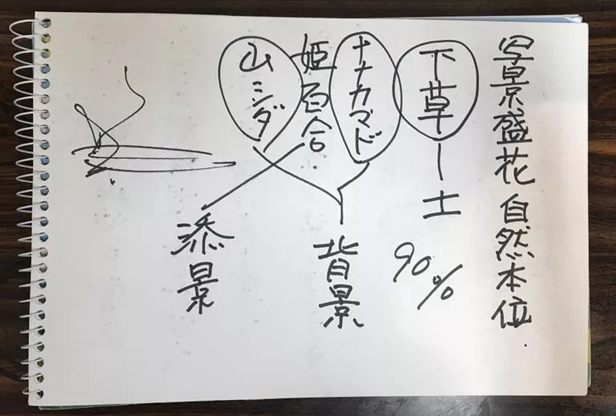 写景盛花 自然本位.
下草ー土
90%
ナナカマド
姫百合
山シダ
背景
添景